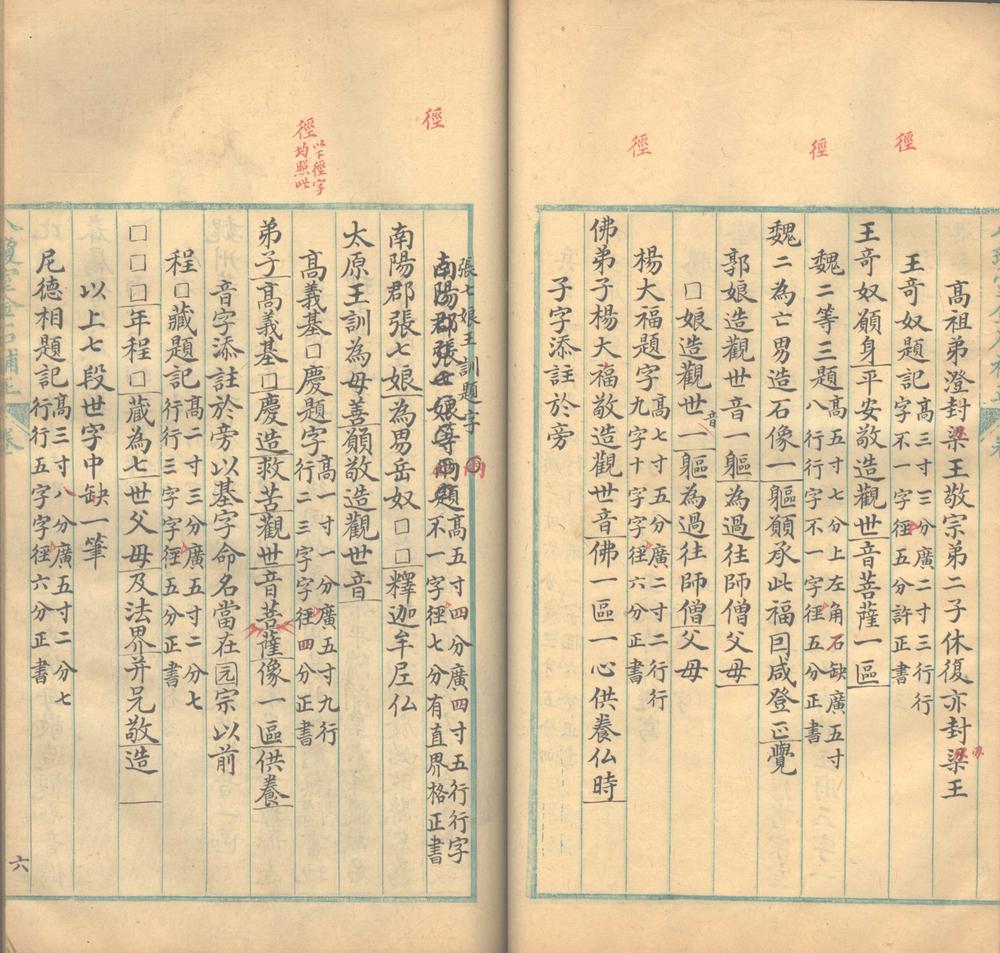 徑
徑
徑
高祖弟澄封梁王敬宗弟二子休復亦封梁王
王竒奴題記高三寸三分廣二寸三行行
字不一字徑五分許正書
王竒奴願身平安敬造觀世音菩薩一區
魏二等三題高五寸七分上左角石缺廣五寸
八行行字不一字徑五分正書
魏二為亡男造石像一軀願承此福囙咸登正覺
郭娘造觀世音一軀為過往師僧父母
□娘造觀世一軀為過往師僧父母
音
楊大福題字高七寸五分廣二寸二行行
九字十字字徑六分正書
佛弟子楊大福敬造觀世音佛一區一心供養仏時
子字添註於旁
徑
徑
以下徑字
均照此
張七娘王訓題字
南陽郡張七娘等兩題高五寸四分廣四寸五行行字
不一字徑七分有直界格正書
南陽郡張七娘為男岳奴□□釋迦牟𡰱仏
太原王訓為母善願敬造觀世音
高義基□慶題字高一寸一分廣五寸九行
行二三字字徑四分正書
弟子高義基□慶造救苦觀世音菩薩像一區供養
音字添註於旁以基字命名當在园宗以前
程□藏題記高二寸三分廣五寸二分七
行行三字字徑五分正書
□□□年程□藏為七世父母及法界并兄敬造
以上七段世字中缺一筆
尼德相題記高三寸八分廣五寸二分七
行行五字字徑六分正書
六